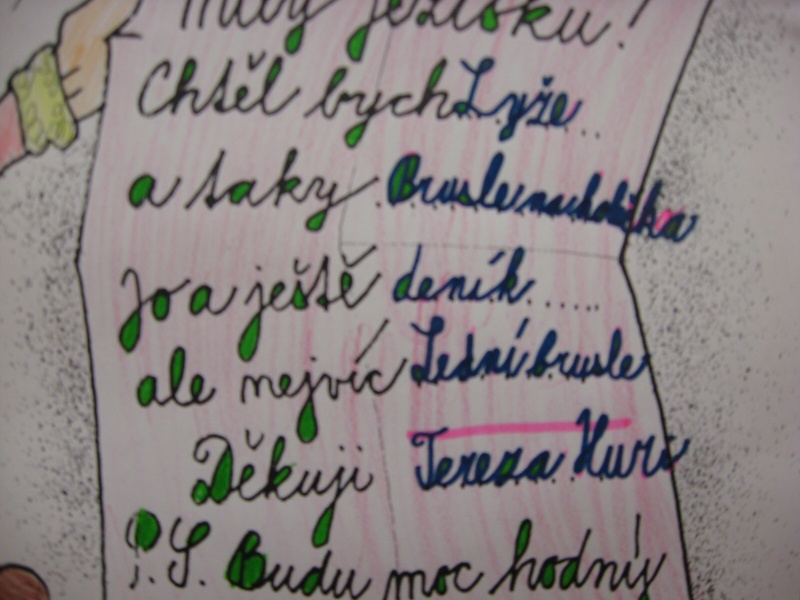 Milý Ježíšku!
Chtěl bych Lyže..
a taky Brusle na
Jo a ještě deník.....
ale nejvíc Lední brusle
Děkuji Tereza
P.S. Budu moc hodný